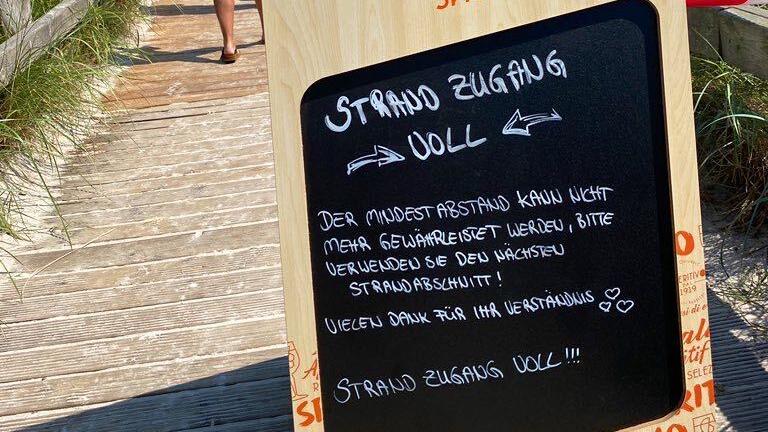 STRAND ZUGANG
VOLL
DER MINDESTABSTAND KANN NICHT
MEHR GEWÄHRLEISTET WERDEN, BITTE
VERWENDEN SIE DEN NÄCHSTEN
STRANDABSCHNITT!
VIELEN DANK FÜR IHR VERSTÄNDNIS
STRAND ZUGANG VOLL!!!
1919